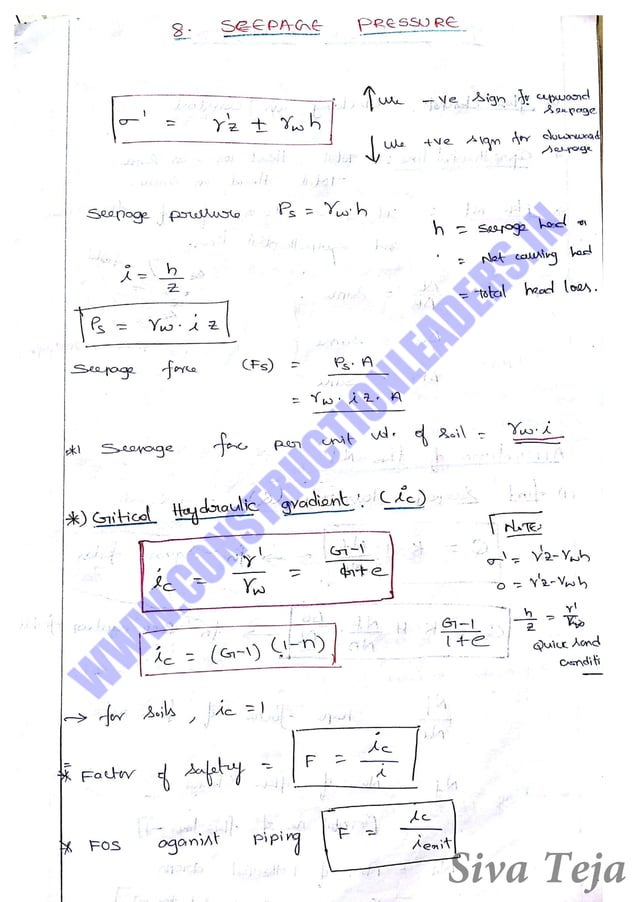 8. SEEPAGE PRESSURE
σ' = γ'z ± γw h
↑ use -ve sign for upward seepage
↓ use +ve sign for downward seepage
Seepage pressure Ps = γw.h
h = seepage head or
= Net causing head
= Total head loss.
i = h/z
Ps = γw . i z
Seepage force (Fs) = Ps. A
= γw. iz. A
*) Seepage force per unit vol. of soil = γw.i
*) Critical Haydraulic gradient: (ic)
ic = γ'/γw = G-1/1+e
ic = (G-1) (1-n)
NOTE:
σ' = γ'z-γwh
0 = γ'z-γwh
h/z = γ'/γw
G-1/1+e
Quick sand
conditi
→ for soils, ic = 1
* Factor of safety = F = ic/i
* FOS aganist piping F = ic/iexit
WWW.CONSTRUCTIONLEADERS.IN
Siva Teja